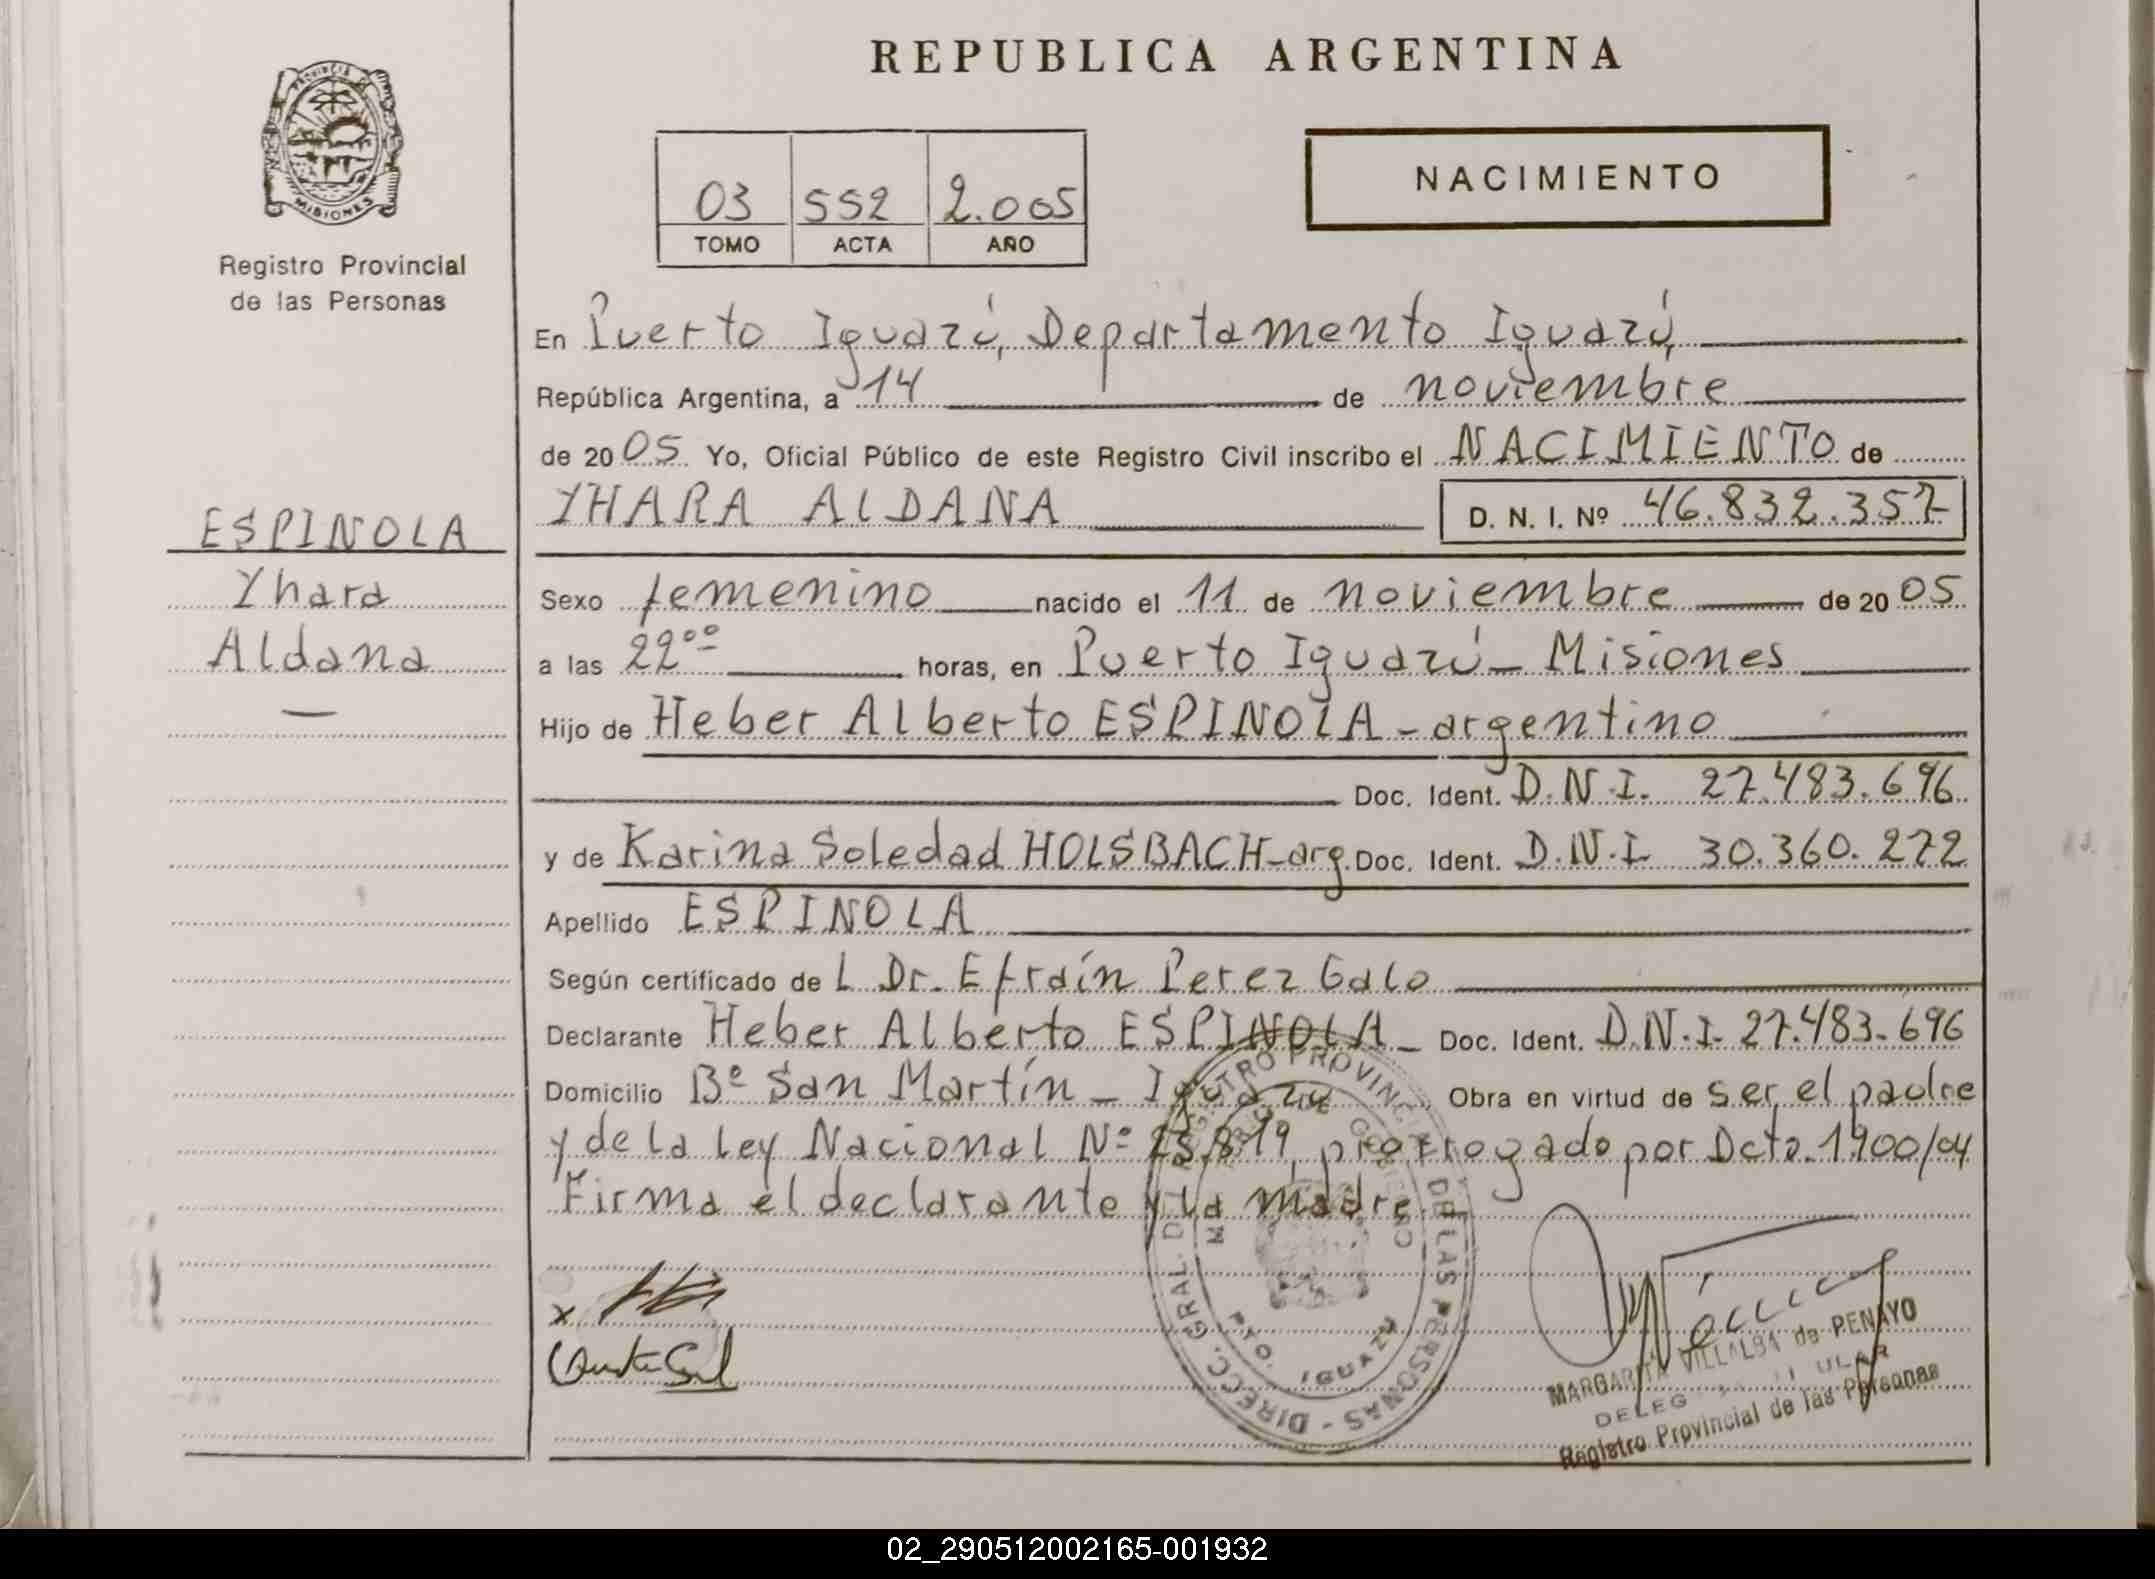 REPUBLICA ARGENTINA
PROVINCIA DE
MISIONES
Registro Provincial
de las Personas
03 552 2.005
TOMO ACTA AÑO
NACIMIENTO
En Puerto Iguazú, Departamento Iguazú,
República Argentina, a 14 de noviembre
de 20 05 Yo, Oficial Público de este Registro Civil inscribo el NACIMIENTO de
YHARA ALDANA D. N. I. Nº 46.832.357
ESPINOLA
Yhara
Aldana
Sexo femenino nacido el 11 de noviembre de 20 05
a las 22ºº horas, en Puerto Iguazú - Misiones
Hijo de Heber Alberto ESPINOLA - argentino
Doc. Ident. D.N.I. 27.483.696
y de Karina Soledad HOLSBACH - arg. Doc. Ident. D.N.I. 30.360.272
Apellido ESPINOLA
Según certificado de L Dr. Efraín Perez Galo
Declarante Heber Alberto ESPINOLA - Doc. Ident. D.N.I. 27.483.696
Domicilio Bº San Martín - Iguazu Obra en virtud de ser el padre
y de la Ley Nacional Nº 25.819, prorrogado por Dcto. 1900/04
Firma el declarante y la madre.
x
DIRECC. GRAL. DEL REGISTRO PROVINCIAL DE LAS PERSONAS
DE GOBIERNO
PTO. IGUAZU
MARGARITA VILLALBA de PENAYO
Registro Provincial de las Personas
02_290512002165-001932